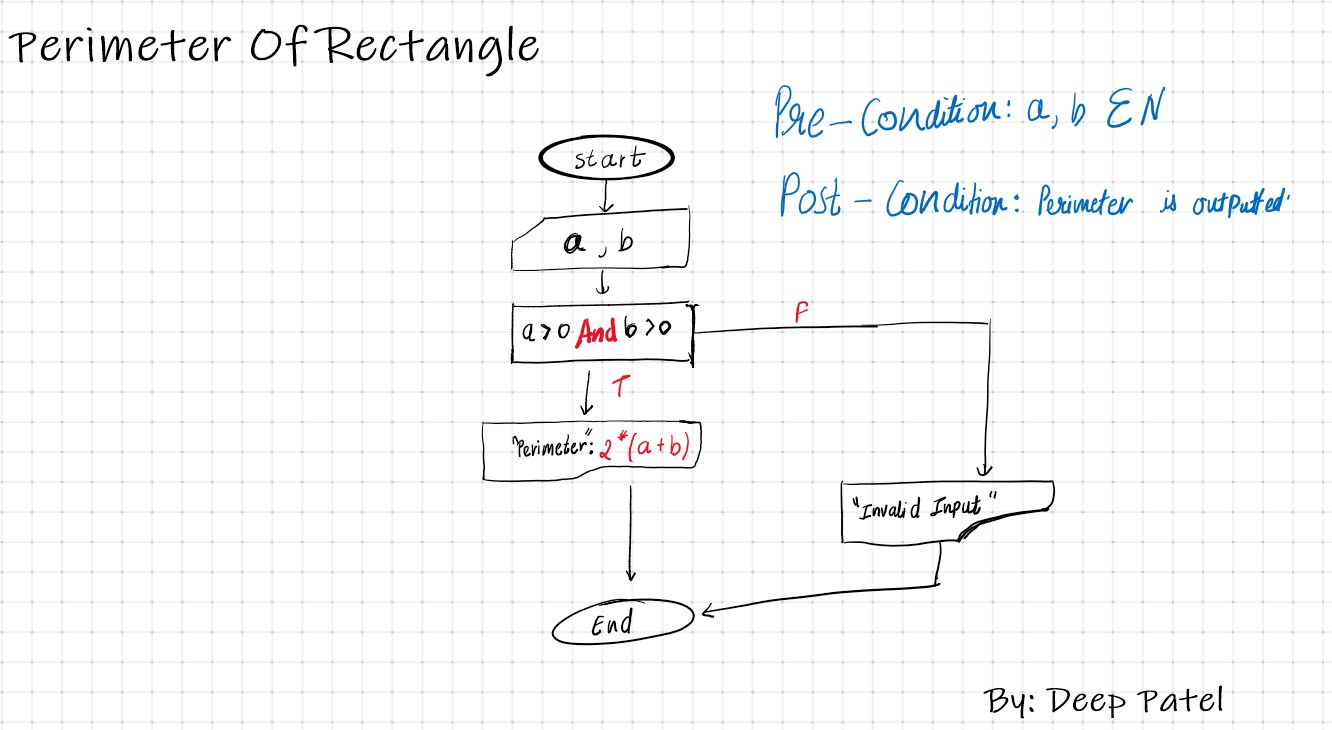 Perimeter Of Rectangle
Pre-Condition: a, b ℇ N
Post - Condition: Perimeter is outputted.
start
a , b
a > 0 And b > 0
F
T
"Perimeter": 2*(a+b)
"Invalid Input"
End
By: Deep Patel